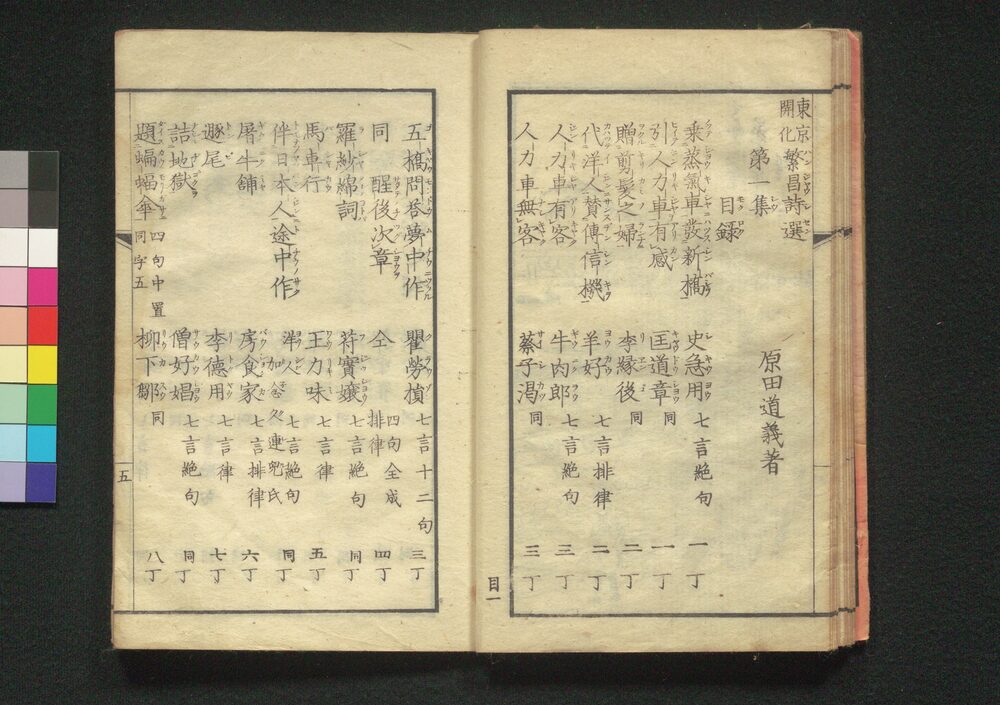 東京開化繁昌詩選
第一集
目録
原田道義著
乗蒸氣車發新橋 史急用 七言絶句 一丁
引人力車有感 匡道章 同 一丁
贈剪髪之婦 李縁後 同 二丁
代洋人賛傳信機 羊好 七言排律 二丁
人力車有客 牛肉郎 七言絶句 三丁
人力車無客 蔡子渇 同 三丁
目一
五橋問荅夢中作 瞿勞損 七言十二句 三丁
同醒後次章 仝 四句全成排律 四丁
羅紗綿詞 符實孃 七言絶句 同丁
馬車行 王力味 七言律 五丁
伴日本人途中作 洋人 七言絶句 同丁
屠牛舗 房食家 七言排律 六丁
豚尾 李德用 七言律 七丁
詰地獄 僧好娼 七言絶句 同丁
題蝙蝠傘 四句中置同字五 柳下鄒 同 八丁
五